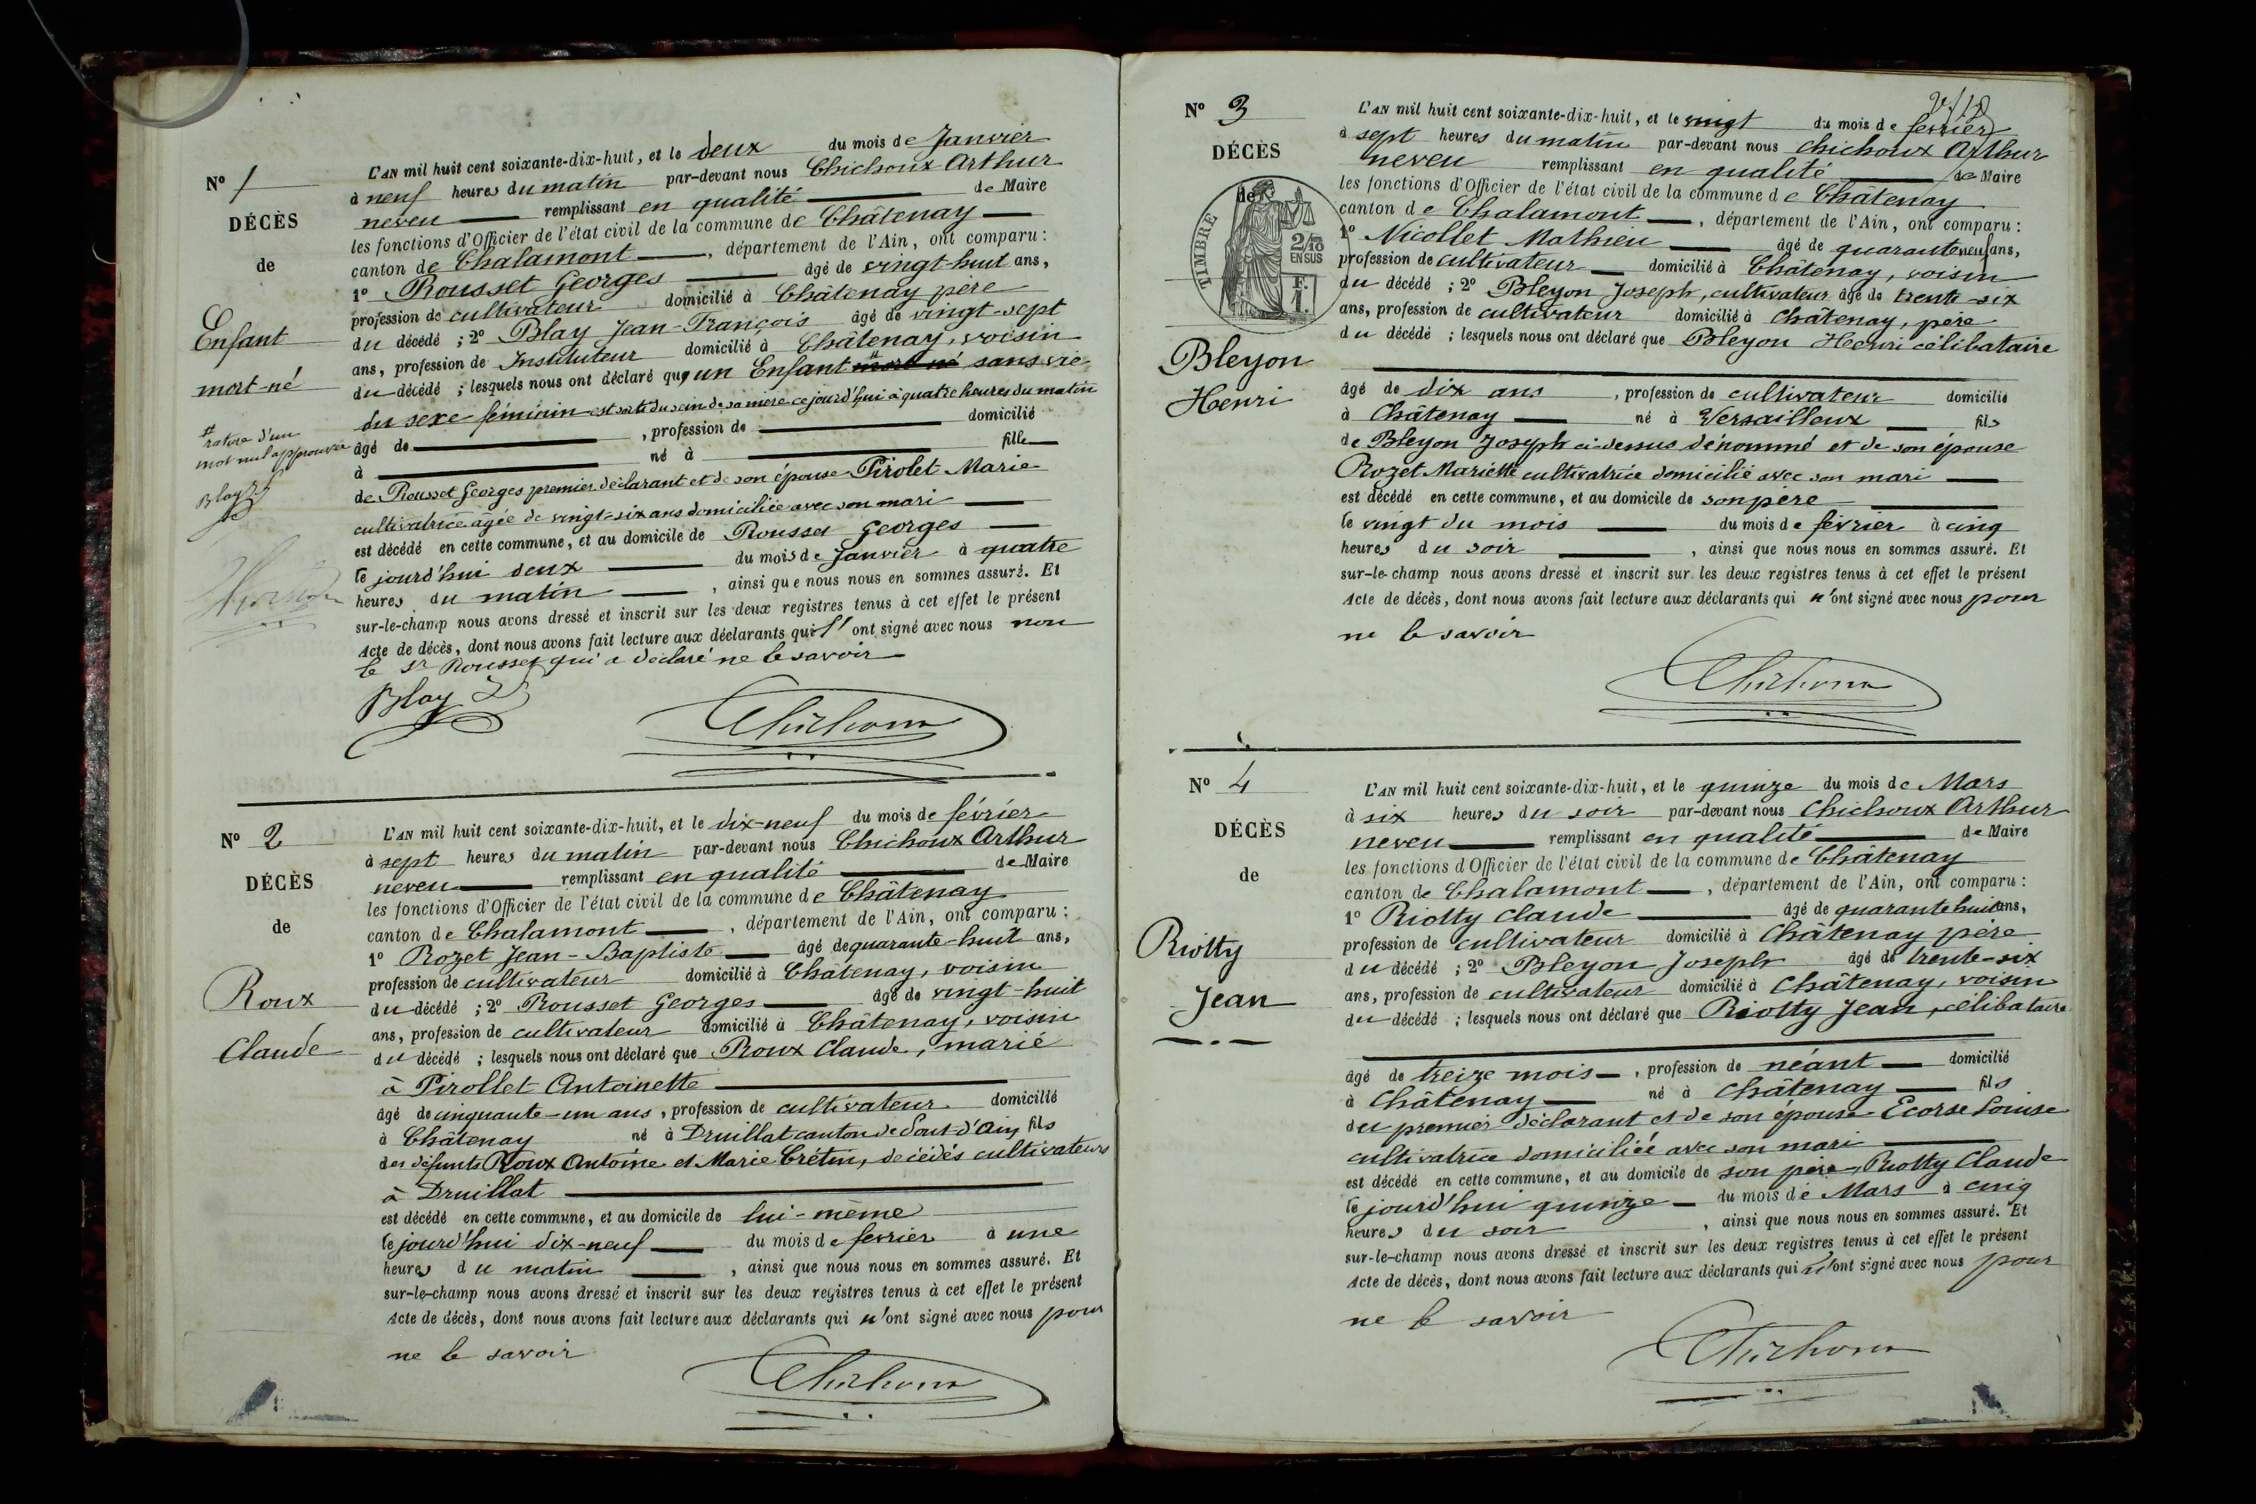 N° 1
DÉCÈS
de
Enfant
mort-né
rature d'un
mot nul approuvée
Blay
L'AN mil huit cent soixante-dix-huit, et le deux du mois de Janvier
à neuf heures du matin par-devant nous Chichoux Arthur
neveu remplissant en qualité de Maire
les fonctions d'Officier de l'état civil de la commune de Châtenay
canton de Chalamont, département de l'Ain, ont comparu :
1° Rousset Georges âgé de vingt-huit ans,
profession de cultivateur domicilié à Châtenay père
du décédé ; 2° Blay Jean-François âgé de vingt-sept
ans, profession de Instituteur domicilié à Châtenay, voisin
du décédé ; lesquels nous ont déclaré qu'un Enfant mort-né sans vie
du sexe féminin est sorti du sein de sa mère cejourd'hui à quatre heures du matin
âgé de , profession de domicilié
à né à fille
de Rousset Georges premier déclarant et de son épouse Pirolet Marie
cultivatrice âgée de vingt-six ans domiciliée avec son mari
est décédé en cette commune, et au domicile de Rousset Georges
le jourd'hui deux du mois de Janvier à quatre
heures du matin , ainsi que nous nous en sommes assuré. Et
sur-le-champ nous avons dressé et inscrit sur les deux registres tenus à cet effet le présent
Acte de décès, dont nous avons fait lecture aux déclarants qui l'ont signé avec nous non
le Sr Rousset qui a déclaré ne le savoir
Blay
Chichoux
N° 2
DÉCÈS
de
Roux
Claude
L'AN mil huit cent soixante-dix-huit, et le dix-neuf du mois de février
à sept heures du matin par-devant nous Chichoux Arthur
neveu remplissant en qualité de Maire
les fonctions d'Officier de l'état civil de la commune de Châtenay
canton de Chalamont, département de l'Ain, ont comparu :
1° Rozet Jean-Baptiste âgé de quarante-huit ans,
profession de cultivateur domicilié à Châtenay, voisin
du décédé ; 2° Rousset Georges âgé de vingt-huit
ans, profession de cultivateur domicilié à Châtenay, voisin
du décédé ; lesquels nous ont déclaré que Roux Claude, marié
à Pirollet Antoinette
âgé de cinquante-un ans, profession de cultivateur domicilié
à Châtenay né à Druillat canton de Pont-d'Ain fils
des défunts Roux Antoine et Marie Crétin, décédés cultivateurs
à Druillat
est décédé en cette commune, et au domicile de lui-même
le jourd'hui dix-neuf du mois de février à une
heures du matin , ainsi que nous nous en sommes assuré. Et
sur-le-champ nous avons dressé et inscrit sur les deux registres tenus à cet effet le présent
Acte de décès, dont nous avons fait lecture aux déclarants qui n'ont signé avec nous pour
ne le savoir
Chichoux
N° 3
DÉCÈS
de
TIMBRE
2/10
EN SUS
F.
1.
Bleyon
Henri
L'AN mil huit cent soixante-dix-huit, et le vingt du mois de février
à sept heures du matin par-devant nous Chichoux Arthur
neveu remplissant en qualité de Maire
les fonctions d'Officier de l'état civil de la commune de Châtenay
canton de Chalamont, département de l'Ain, ont comparu :
1° Nicollet Mathieu âgé de quarante neuf ans,
profession de cultivateur domicilié à Châtenay, voisin
du décédé ; 2° Bleyon Joseph, cultivateur âgé de trente-six
ans, profession de cultivateur domicilié à Châtenay, père
du décédé ; lesquels nous ont déclaré que Bleyon Henri célibataire
âgé de dix ans , profession de cultivateur domicilié
à Châtenay né à Versailleux fils
de Bleyon Joseph ci-dessus dénommé et de son épouse
Rozet Mariette cultivatrice domicilié avec son mari
est décédé en cette commune, et au domicile de son père
le vingt du mois du mois de février à cinq
heures du soir , ainsi que nous nous en sommes assuré. Et
sur-le-champ nous avons dressé et inscrit sur les deux registres tenus à cet effet le présent
Acte de décès, dont nous avons fait lecture aux déclarants qui n'ont signé avec nous pour
ne le savoir
Chichoux
N° 4
DÉCÈS
de
Riotty
Jean
L'AN mil huit cent soixante-dix-huit, et le quinze du mois de Mars
à six heures du soir par-devant nous Chichoux Arthur
neveu remplissant en qualité de Maire
les fonctions d'Officier de l'état civil de la commune de Châtenay
canton de Chalamont, département de l'Ain, ont comparu :
1° Riotty Claude âgé de quarante huit ans,
profession de cultivateur domicilié à Châtenay père
du décédé ; 2° Bleyon Joseph âgé de trente-six
ans, profession de cultivateur domicilié à Châtenay, voisin
du décédé ; lesquels nous ont déclaré que Riotty Jean, célibataire
âgé de treize mois , profession de néant domicilié
à Châtenay né à Châtenay fils
du premier déclarant et de son épouse Ecorse Louise
cultivatrice domiciliée avec son mari
est décédé en cette commune, et au domicile de son père, Riotty Claude
le jourd'hui quinze du mois de Mars à cinq
heures du soir , ainsi que nous nous en sommes assuré. Et
sur-le-champ nous avons dressé et inscrit sur les deux registres tenus à cet effet le présent
Acte de décès, dont nous avons fait lecture aux déclarants qui n'ont signé avec nous pour
ne le savoir
Chichoux